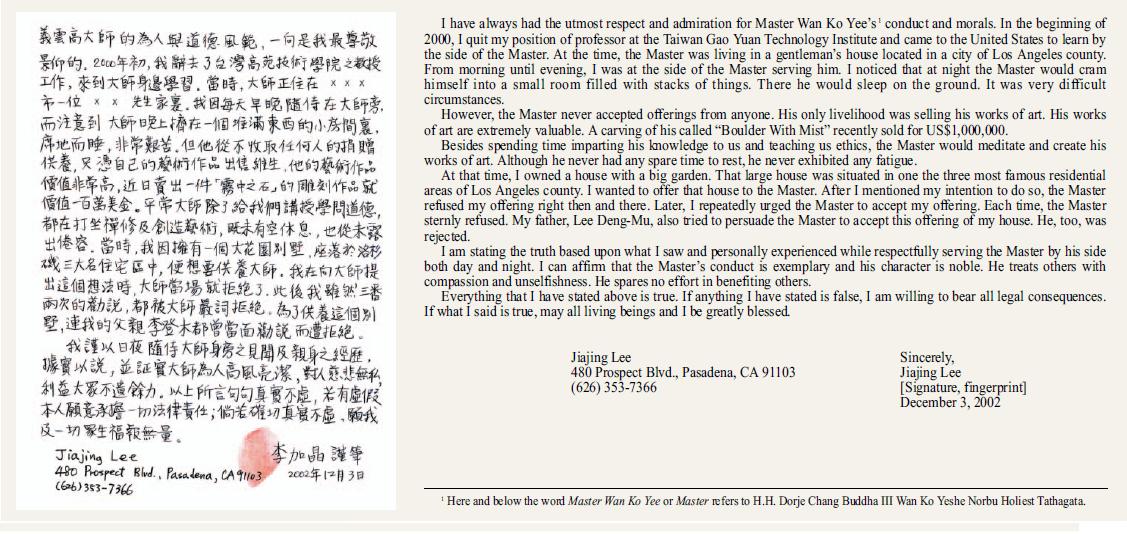 義雲高大師的為人與道德風範,一向是我最尊敬
景仰的。2000年初,我辭去了台灣高苑技術學院之教授
工作,來到大師身邊學習。當時,大師正住在 × × ×
市一位 × × 先生家裏。我因每天早晚隨侍在大師旁,
而注意到 大師晚上擠在一個堆滿東西的小房間裏,
席地而睡,非常艱苦。但他從不收取任何人的捐贈
供養,只憑自己的藝術作品出售維生,他的藝術作品
價值非常高,近日賣出一件「霧中之石」的雕刻作品就
價值一百萬美金。平常大師除了給我們講授學問道德,
都在打坐禪修及創造藝術,既未有空休息,也從未露
出倦容。當時,我因擁有一個大花園別墅,座落於洛杉
磯三大名住宅區中,便想要供養大師。我在向大師提
出這個想法時,大師當場就拒絕了。此後我雖然三番
兩次的勸說,都被大師嚴詞拒絕。為了供養這個別
墅,連我的父親李登木都曾當面勸說而遭拒絕。
我謹以日夜隨侍大師身旁之見聞及親身之經歷,
據實以說,並証實大師為人高風亮潔,對人慈悲無私
利益大眾不遺餘力。以上所言句句真實不虛,若有虛假
本人願意承擔一切法律責任;倘若確切真實不虛,願我
及一切眾生福報無量。
Jiajing Lee
480 Prospect Blvd., Pasadena, CA 91103
(626)353-7366
李加晶 謹筆
2002年12月3日
I have always had the utmost respect and admiration for Master Wan Ko Yee's¹ conduct and morals. In the beginning of
2000, I quit my position of professor at the Taiwan Gao Yuan Technology Institute and came to the United States to learn by
the side of the Master. At the time, the Master was living in a gentleman's house located in a city of Los Angeles county.
From morning until evening, I was at the side of the Master serving him. I noticed that at night the Master would cram
himself into a small room filled with stacks of things. There he would sleep on the ground. It was very difficult
circumstances.
However, the Master never accepted offerings from anyone. His only livelihood was selling his works of art. His works
of art are extremely valuable. A carving of his called “Boulder With Mist” recently sold for US$1,000,000.
Besides spending time imparting his knowledge to us and teaching us ethics, the Master would meditate and create his
works of art. Although he never had any spare time to rest, he never exhibited any fatigue.
At that time, I owned a house with a big garden. That large house was situated in one the three most famous residential
areas of Los Angeles county. I wanted to offer that house to the Master. After I mentioned my intention to do so, the Master
refused my offering right then and there. Later, I repeatedly urged the Master to accept my offering. Each time, the Master
sternly refused. My father, Lee Deng-Mu, also tried to persuade the Master to accept this offering of my house. He, too, was
rejected.
I am stating the truth based upon what I saw and personally experienced while respectfully serving the Master by his side
both day and night. I can affirm that the Master's conduct is exemplary and his character is noble. He treats others with
compassion and unselfishness. He spares no effort in benefiting others.
Everything that I have stated above is true. If anything I have stated is false, I am willing to bear all legal consequences.
If what I said is true, may all living beings and I be greatly blessed.
Jiajing Lee
480 Prospect Blvd., Pasadena, CA 91103
(626) 353-7366
Sincerely,
Jiajing Lee
[Signature, fingerprint]
December 3, 2002
¹ Here and below the word Master Wan Ko Yee or Master refers to H.H. Dorje Chang Buddha III Wan Ko Yeshe Norbu Holiest Tathagata.